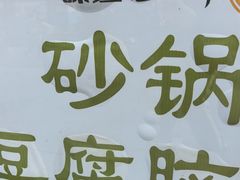 砂锅
豆腐脑